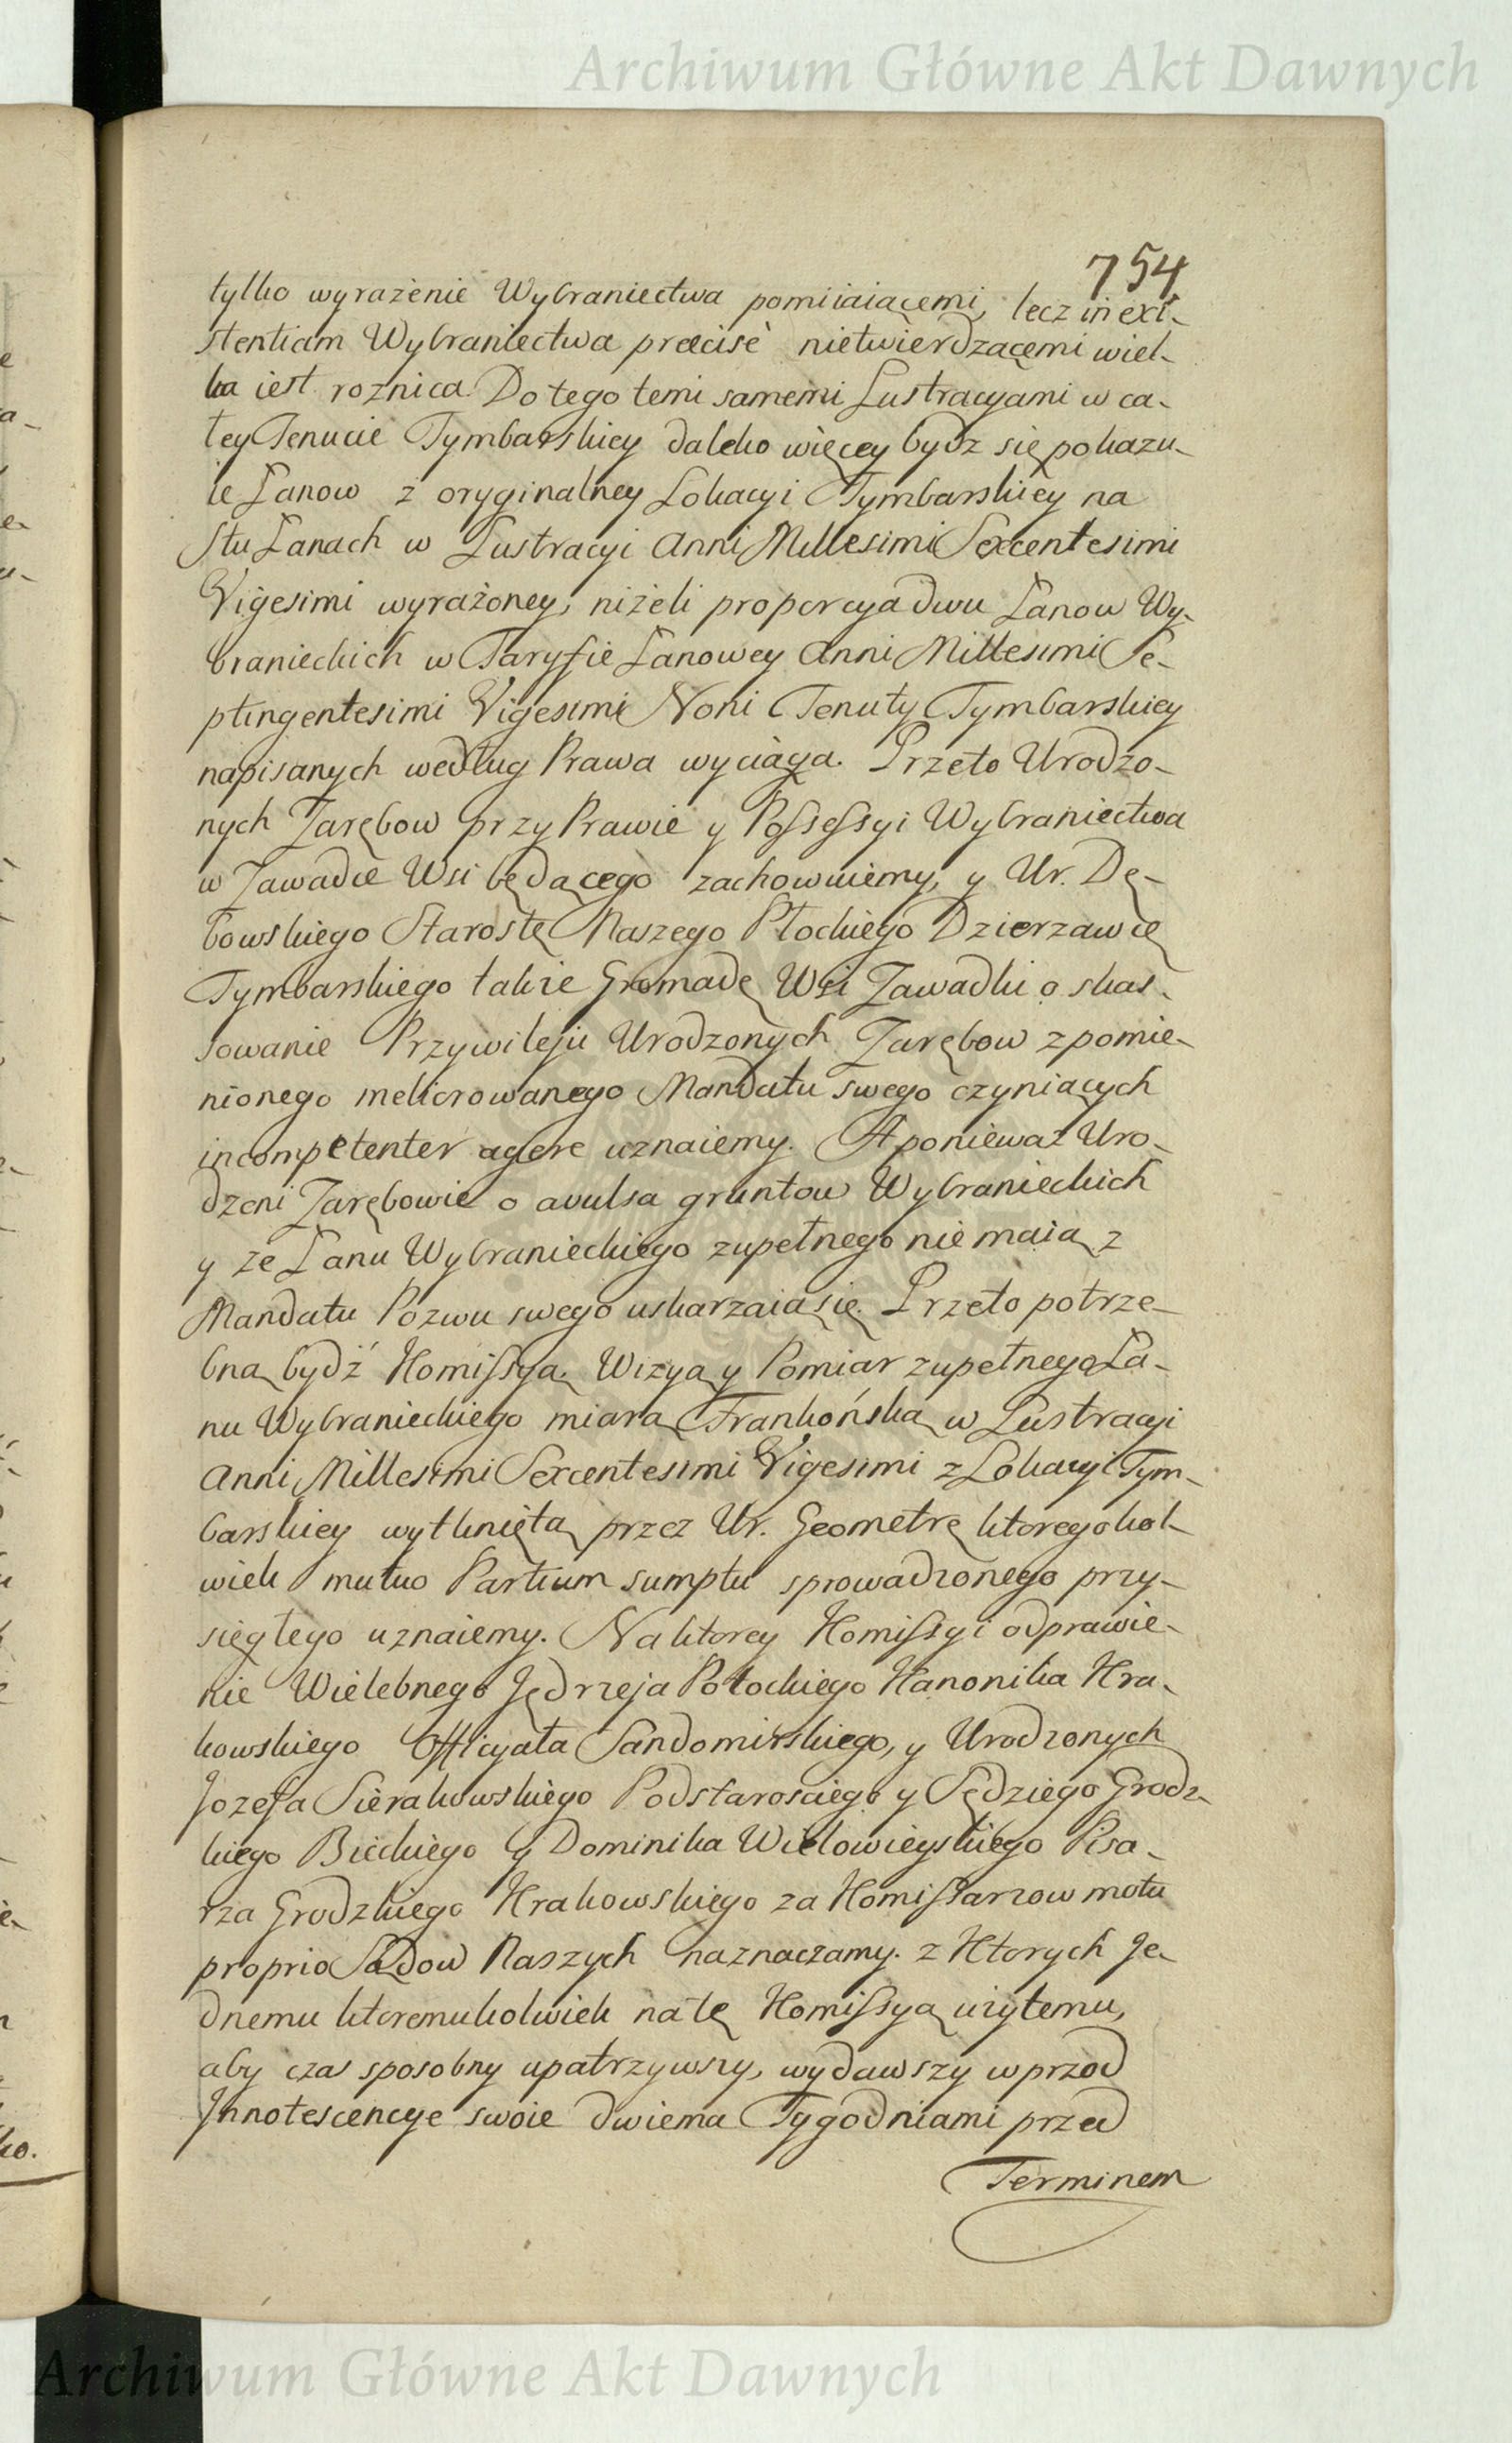 Archiwum Główne Akt Dawnych
754
tylko wyrażenie Wybraniectwa pomiiaiącemi, lecz in exi-
stentiam Wybraniectwa præcisè nietwierdzącemi wiel-
ka iest roznica. Do tego temi samemi Lustracyami w ca-
łey Tenucie Tymbarskiey daleko więcey bydz się pokazu-
ie Łanow z oryginalney Lokacyi Tymbarskiey na
Stu Łanach w Lustracyi Anni Millesimi Sexcentesimi
Vigesimi wyrażoney, niżeli proporcya dwu Łanow Wy-
branieckich w Taryfie Łanowey Anni Millesimi Se-
ptingentesimi Vigesimi Noni Tenuty Tymbarskiey
napisanych według Prawa wyciąga. Przeto Urodzo-
nych Zarębow przy Prawie y Possessyi Wybraniectwa
w Zawadce Wsi będącego zachowuiemy, y Ur. Dę-
bowskiego Starostę Naszego Płockiego Dzierzawcę
Tymbarskiego także Gromadę Wsi Zawadki o skas-
sowanie Przywileju Urodzonych Zarębow z pomie-
nionego meliorowanego Mandatu swego czyniących
incompetenter agere uznaiemy. A ponieważ Uro-
dzeni Zarębowie o avulsa gruntow Wybranieckich
y ze Łanu Wybranieckiego zupełnego nie maią z
Mandatu Pozwu swego uskarzaią się. Przeto potrze-
bną bydź Kommissyą. Wizyą y Pomiar zupełnego Ła-
nu Wybranieckiego miarą Frankońską w Lustracyi
Anni Millesimi Sexcentesimi Vigesimi z Lokacyi Tym-
barskiey wytkniętą przez Ur. Geometrę ktoregokol-
wiek mutuo Partium sumptu sprowadzonego przy-
sięgłego uznaiemy. Na ktorey Komissyi odprawie-
nie Wielebnego Jędrzeja Potockiego Kanonika Kra-
kowskiego Officyała Sandomirskiego, y Urodzonych
Jozefa Sierakowskiego Podstarosciego y Sędziego Grodz-
kiego Bieckiego y Dominika Wielowieyskiego Pisa-
rza Grodzkiego Krakowskiego za Komissarzow motu
proprio Sądow Naszych naznaczamy. z Ktorych Je-
dnemu ktoremukolwiek na tę Komissyą użytemu,
aby czas sposobny upatrzywszy, wydawszy wprzod
Jnnotescencye swoie dwiema Tygodniami przed
Terminem
Archiwum Główne Akt Dawnych